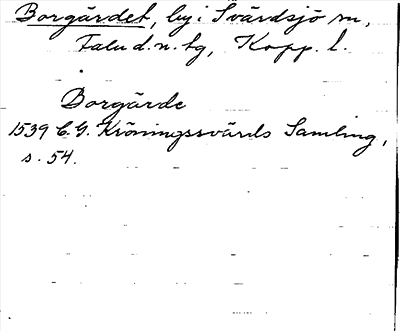 Borgärdet, by i Svärdsjö sn,
Falu d. n. tg, Kopp. l.
Borgärde
1539 C. G. Kröningssvärds Samling,
s. 54.